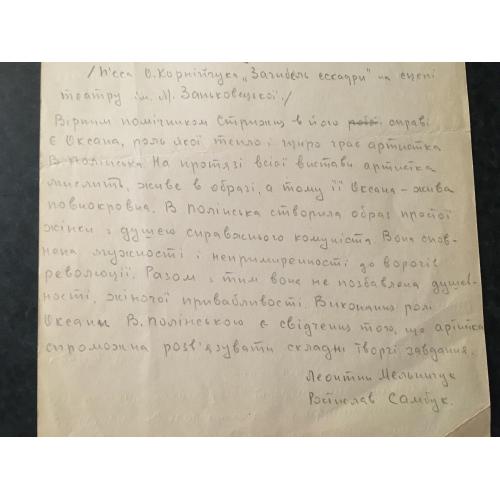 /П'єса О. Корнійчука „Загибель ескадри" на сцені
театру ім. М. Заньковецької./
Вірним помічником Стрижня в його справі
є Оксана, роль якої тепло і щиро грає артистка
В. Полінська. На протязі всієї вистави артистка
мислить, живе в образі, а тому її Оксана – жива
повнокровна. В. Полінська створила образ простої
жінки з душею справжнього комуніста. Вона спов-
нена мужності і непримиренності до ворогів
революції. Разом з тим вона не позбавлена душев-
ності, жіночої привабливості. Виконання ролі
Оксани В. Полінською є свідченням того, що артистка
спроможна розв'язувати складні творчі завдання.
Леонтин Мельничук
Ростислав Самбук.